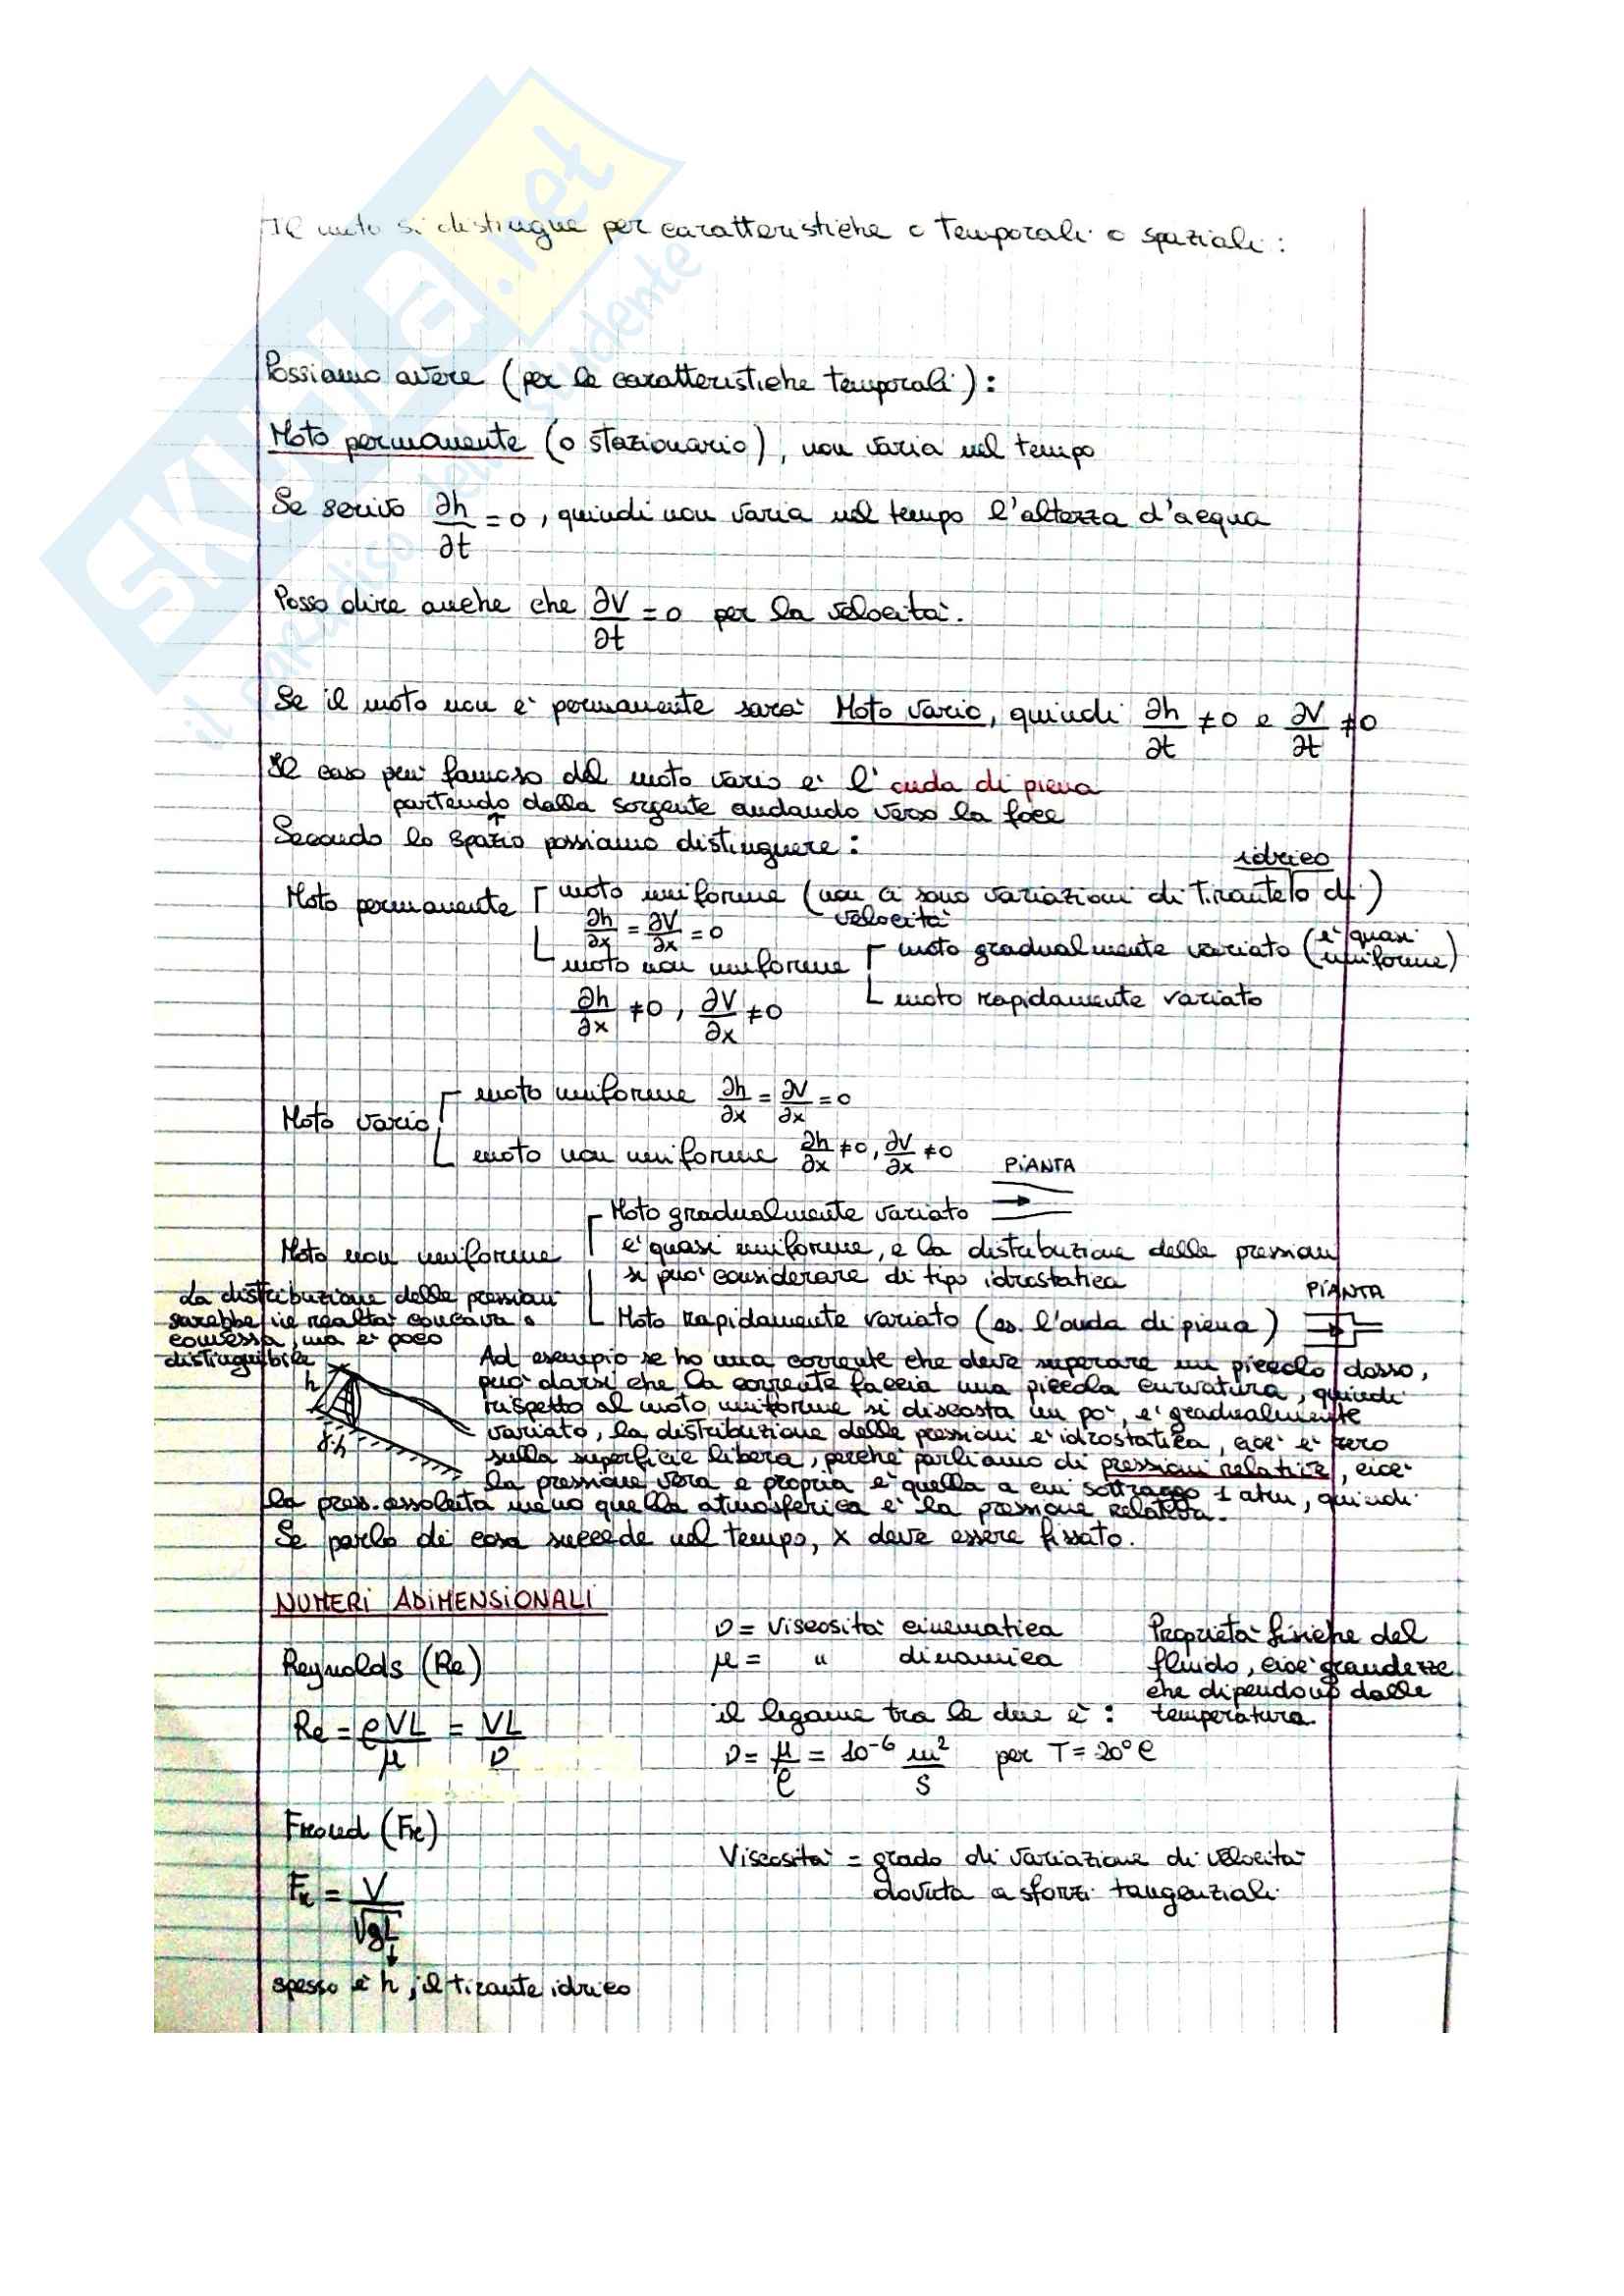 SKUOLA.net
il paradiso dello studente
Il moto si distingue per caratteristiche o temporali o spaziali:
Possiamo avere (per le caratteristiche temporali):
Moto permanente (o stazionario), non varia nel tempo
Se scrivo ∂h/∂t = 0, quindi non varia nel tempo l'altezza d'acqua
Posso dire anche che ∂V/∂t = 0 per la velocità.
Se il moto non è permanente sarà Moto vario, quindi ∂h/∂t ≠ 0 e ∂V/∂t ≠ 0
Il caso più famoso del moto vario è l'onda di piena
partendo dalla sorgente andando verso la foce
↑
Secondo lo spazio possiamo distinguere:
Moto permanente
moto uniforme (non ci sono variazioni di tirante idrico o di velocità)
∂h/∂x = ∂V/∂x = 0
moto non uniforme
∂h/∂x ≠ 0, ∂V/∂x ≠ 0
moto gradualmente variato (è quasi uniforme)
moto rapidamente variato
Moto vario
moto uniforme ∂h/∂x = ∂V/∂x = 0
moto non uniforme ∂h/∂x ≠ 0, ∂V/∂x ≠ 0
PIANTA
Moto non uniforme
Moto gradualmente variato →
è quasi uniforme, e la distribuzione delle pressioni
si può considerare di tipo idrostatica
PIANTA
Moto rapidamente variato (es. l'onda di piena)
La distribuzione delle pressioni
sarebbe in realtà concava o
convessa, ma è poco
distinguibile
h
γ·h
Ad esempio se ho una corrente che deve superare un piccolo dosso,
può darsi che la corrente faccia una piccola curvatura, quindi
rispetto al moto uniforme si discosta un pò, è gradualmente
variato, la distribuzione delle pressioni è idrostatica, cioè è zero
sulla superficie libera, perché parliamo di pressioni relative, cioè
la pressione vera e propria è quella a cui sottraggo 1 atm, quindi
la press. assoluta meno quella atmosferica è la pressione relativa.
Se parlo di cosa succede nel tempo, x deve essere fissato.
NUMERI ADIMENSIONALI
Reynolds (Re)
Re = ρVL/μ = VL/ν
ν = viscosità cinematica
μ = " dinamica
il legame tra le due è:
ν = μ/ρ = 10⁻⁶ m²/s per T = 20°C
Proprietà fisiche del
fluido, cioè grandezze
che dipendono dalle
temperatura.
Froud (Fr)
Fr = V/√gL
↓
spesso è h, il tirante idrico
Viscosità = grado di variazione di velocità
dovuta a sforzi tangenziali